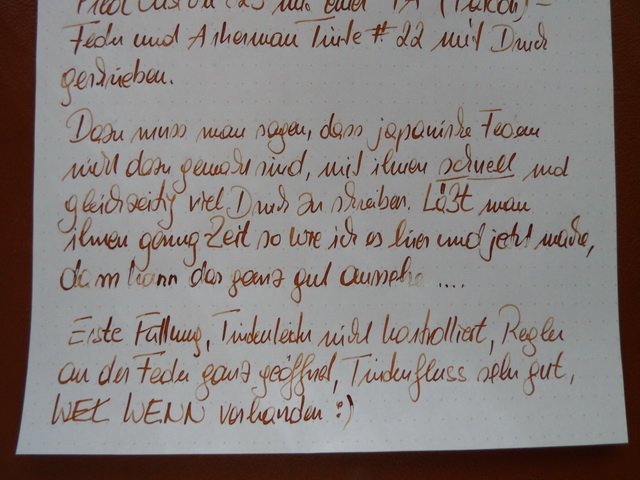 Pilot Custom 823 mit einer FA (Falcon) -
Feder und Akkerman Tinte # 22 mit Druck
geschrieben.
Dazu muss man sagen, dass japanische Federn
nicht dazu gemacht sind, mit ihnen schnell und
gleichzeitig viel Druck zu schreiben. Läßt man
ihnen genug Zeit so wie ich es hier und jetzt mache,
dann kann das ganz gut aussehen ....
Erste Füllung, Tintenleiter nicht kontrolliert, Regler
an der Feder ganz geöffnet, Tintenfluss sehr gut,
WEL WENN vorhanden :)